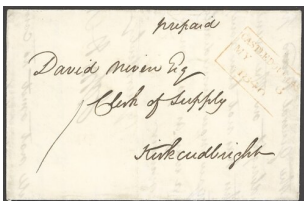 prepaid
David Niven Esq
Clerk of Supply
Kirkcudbright